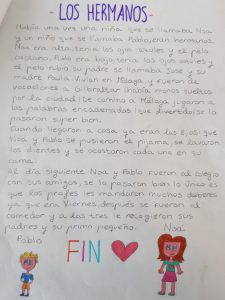 - LOS HERMANOS -
Había una vez una niña que se llamaba Noa
y un niño que se llamaba Pablo, eran hermanos.
Noa era alta, tenía los ojos azules y el pelo
castaño, Pablo era bajo, tenía los ojos azules y
el pelo rubio, su padre se llamaba Jose y su
madre Paula. Vivían en Málaga y fueron de
vacaciones a Gibraltar ¡había monos sueltos
por la ciudad! De camino a Málaga jugaron a
las palabras encadenadas ¡que divertido! se lo
pasaron super bien.
Cuando llegaron a casa ya eran las 8, así que
Noa y Pablo se pusieron el pijama, se lavaron
los dientes y se acostaron cada uno en su
cama.
Al día siguiente Noa y Pablo fueron al colegio
con sus amigos, se la pasaron bien lo único es
que los profes les mandaron muchos deberes
ya que era Viernes, después se fueron al
comedor y a las tres le recogieron sus
padres y su primo pequeño.
Pablo
FIN
Noa